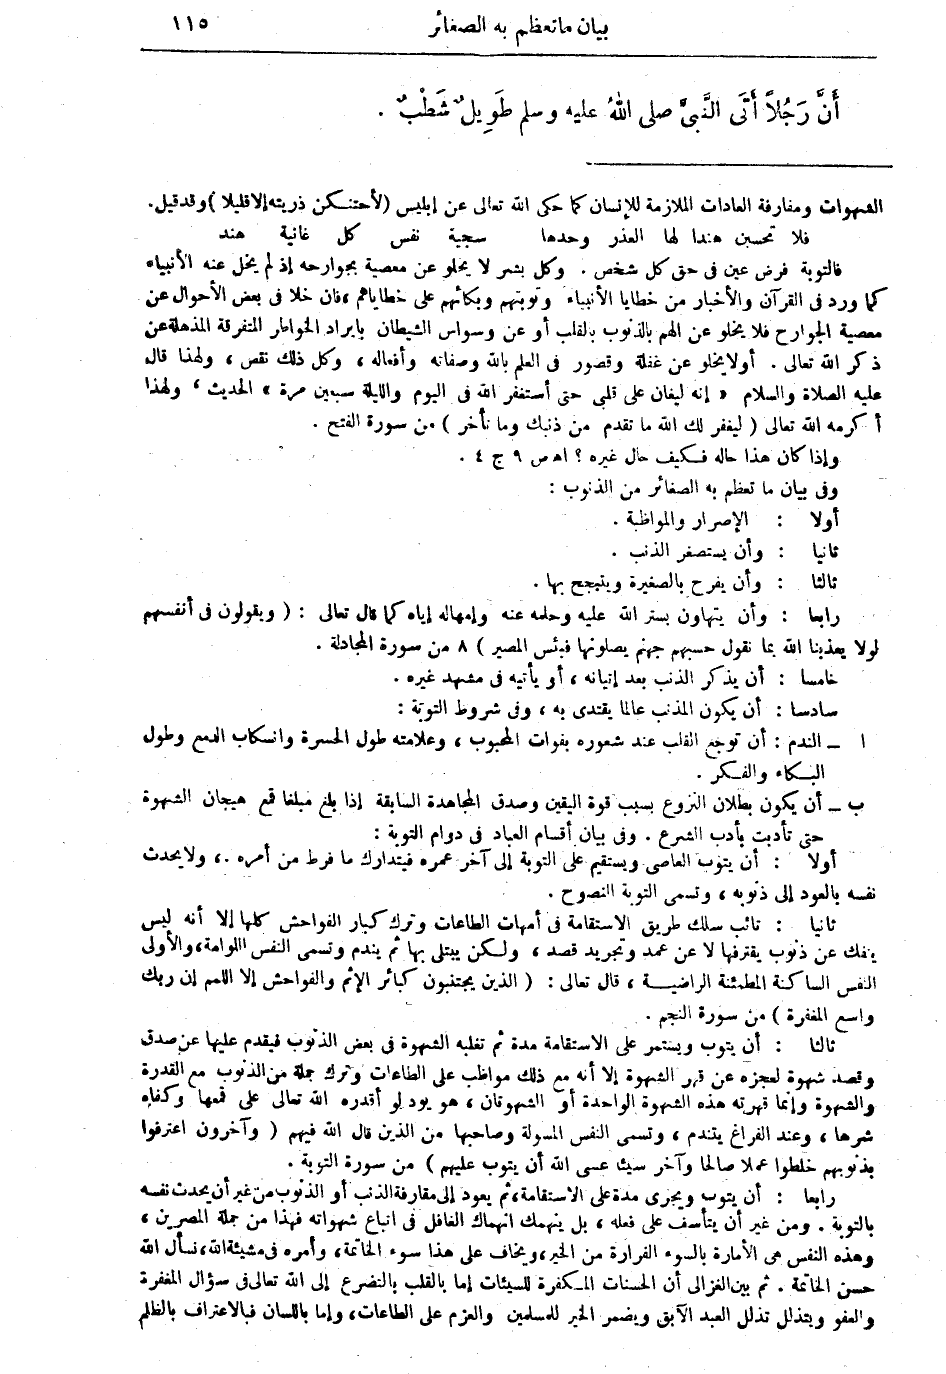 بيان ما تعظم به الصغائر ١١٥
أَنَّ رَجُلاً أَتَى النَّبِىَّ صلى اللهُ عليه وسلم طَوِيلٌ شَطْبٌ .
الشهوات ومفارقة العادات الملازمة للإنسان كما حكى الله تعالى عن إبليس (لأحتنكن ذريته إلا قليلا) وقد قيل.
فلا تحسبن هندا لها العذر وحدها سجية نفس كل غانية هند
فالتوبة فرض عين فى حق كل شخص . وكل بشر لا يخلو عن معصية بجوارحه إذ لم يخل عنه الأنبياء
كما ورد فى القرآن والأخبار من خطايا الأنبياء وتوبتهم وبكائهم على خطاياهم ، فان خلا فى بعض الأحوال عن
معصية الجوارح فلا يخلو عن الهم بالذنوب بالقلب أو عن وسواس الشيطان بايراد الخواطر المتفرقة المذهلة عن
ذكر الله تعالى . أولا يخلو عن غفلة وقصور فى العلم بالله وصفاته وأفعاله ، وكل ذلك نقص ، ولهذا قال
عليه الصلاة والسلام « إنه ليغان على قلبى حتى أستغفر الله فى اليوم والليلة سبعين مرة » الحديث ، ولهذا
أكرمه الله تعالى ( ليغفر لك الله ما تقدم من ذنبك وما تأخر ) من سورة الفتح .
وإذا كان هذا حاله فكيف حال غيره ؟ اه ص ٩ ج ٤ .
وفى بيان ما تعظم به الصغائر من الذنوب :
أولا : الإصرار والمواظبة .
ثانيا : وأن يستصغر الذنب .
ثالثا : وأن يفرح بالصغيرة ويتبجح بها .
رابعا : وأن يتهاون بستر الله عليه وحلمه عنه وإمهاله إياه كما قال تعالى : ( ويقولون فى أنفسهم
لولا يعذبنا الله بما نقول حسبهم جهنم يصلونها فبئس المصير ) ٨ من سورة المجادلة .
خامسا : أن يذكر الذنب بعد إتيانه ، أو يأتيه فى مشهد غيره .
سادسا : أن يكون المذنب عالما يقتدى به ، وفى شروط التوبة :
ا ــ الندم : أن توجع القلب عند شعوره بفوات المحبوب ، وعلامته طول الحسرة وانسكاب الدمع وطول
البكاء والفكر .
ب ــ أن يكون بطلان النزوع بسبب قوة اليقين وصدق المجاهدة السابقة إذا بلغ مبلغا قمع هيجان الشهوة
حتى تأدبت بأدب الشرع . وفى بيان أقسام العباد فى دوام التوبة :
أولا : أن يتوب العاصى ويستقيم على التوبة إلى آخر عمره فيتدارك ما فرط من أمره .، ولا يحدث
نفسه بالعود إلى ذنوبه ، وتسمى التوبة النصوح .
ثانيا : تائب سلك طريق الاستقامة فى أمهات الطاعات وترك كبار الفواحش كلها إلا أنه ليس
ينفك عن ذنوب يقترفها لا عن عمد وتجريد قصد ، ولكن يبتلى بها ثم يندم وتسمى النفس اللوامة، والأولى
النفس الساكنة المطمئنة الراضية ، قال تعالى : ( الذين يجتنبون كبائر الإثم والفواحش إلا اللمم إن ربك
واسع المغفرة ) من سورة النجم .
ثالثا : أن يتوب ويستمر على الاستقامة مدة ثم تغلبه الشهوة فى بعض الذنوب فيقدم عليها عن صدق
وقصد شهوة لعجزه عن قهر الشهوة إلا أنه مع ذلك مواظب على الطاعات وترك جملة من الذنوب مع القدرة
والشهوة وإنما قهرته هذه الشهوة الواحدة أو الشهوتان ، هو يود لو أقدره الله تعالى على قمعها وكفاه
شرها ، وعند الفراغ يتندم ، وتسمى النفس المسولة وصاحبها من الذين قال الله فيهم ( وآخرون اعترفوا
بذنوبهم خلطوا عملا صالحا وآخر سيئا عسى الله أن يتوب عليهم ) من سورة التوبة .
رابعا : أن يتوب ويجرى مدة على الاستقامة، ثم يعود إلى مقارفة الذنب أو الذنوب من غير أن يحدث نفسه
بالتوبة . ومن غير أن يتأسف على فعله ، بل ينهمك انهماك الغافل فى اتباع شهواته فهذا من جملة المصرين ،
وهذه النفس هى الأمارة بالسوء الفرارة من الخير، ويخاف على هذا سوء الخاتمة، وأمره فى مشيئة الله، نسأل الله
حسن الخاتمة . ثم بين الغزالى أن الحسنات المكفرة للسيئات إما بالقلب بالتضرع إلى الله تعالى فى سؤال المغفرة
والعفو ويتذلل تذلل العبد الآبق ويضمر الخير للمسلمين والعزم على الطاعات، وإما باللسان فبالاعتراف بالظلم